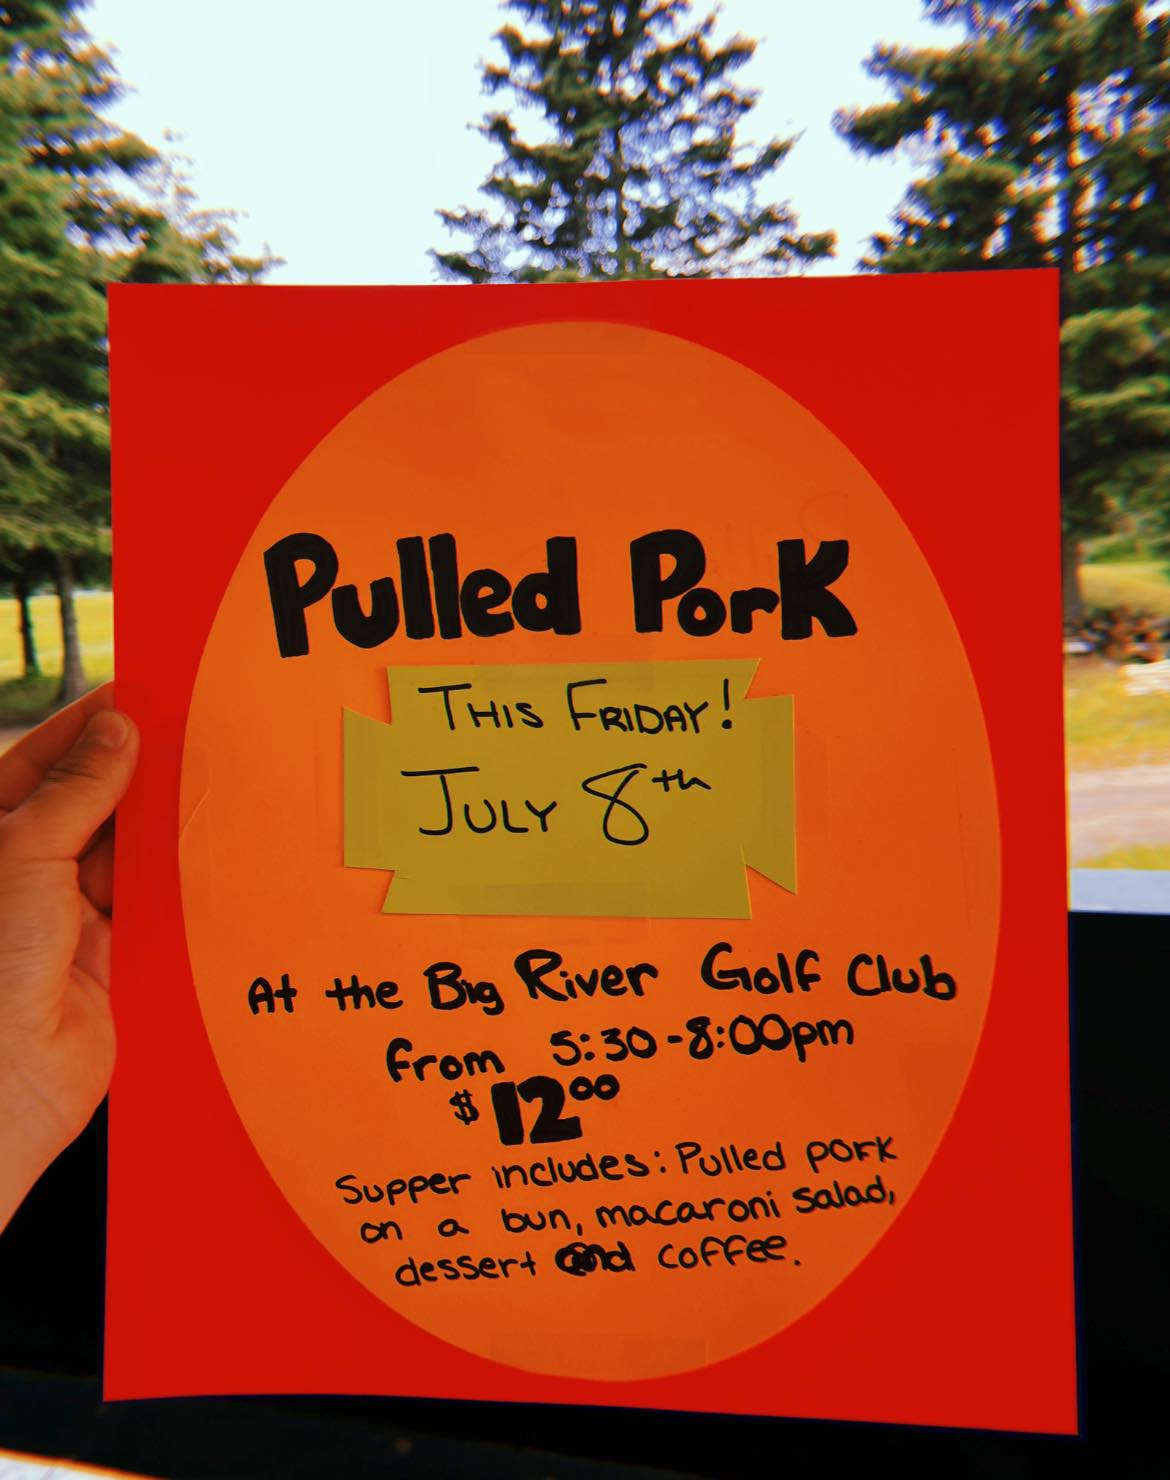 Pulled Pork
THIS FRIDAY!
JULY 8th
At the Big River Golf Club
from 5:30-8:00pm
$12.00
Supper includes: Pulled pork
on a bun, macaroni salad,
dessert and coffee.